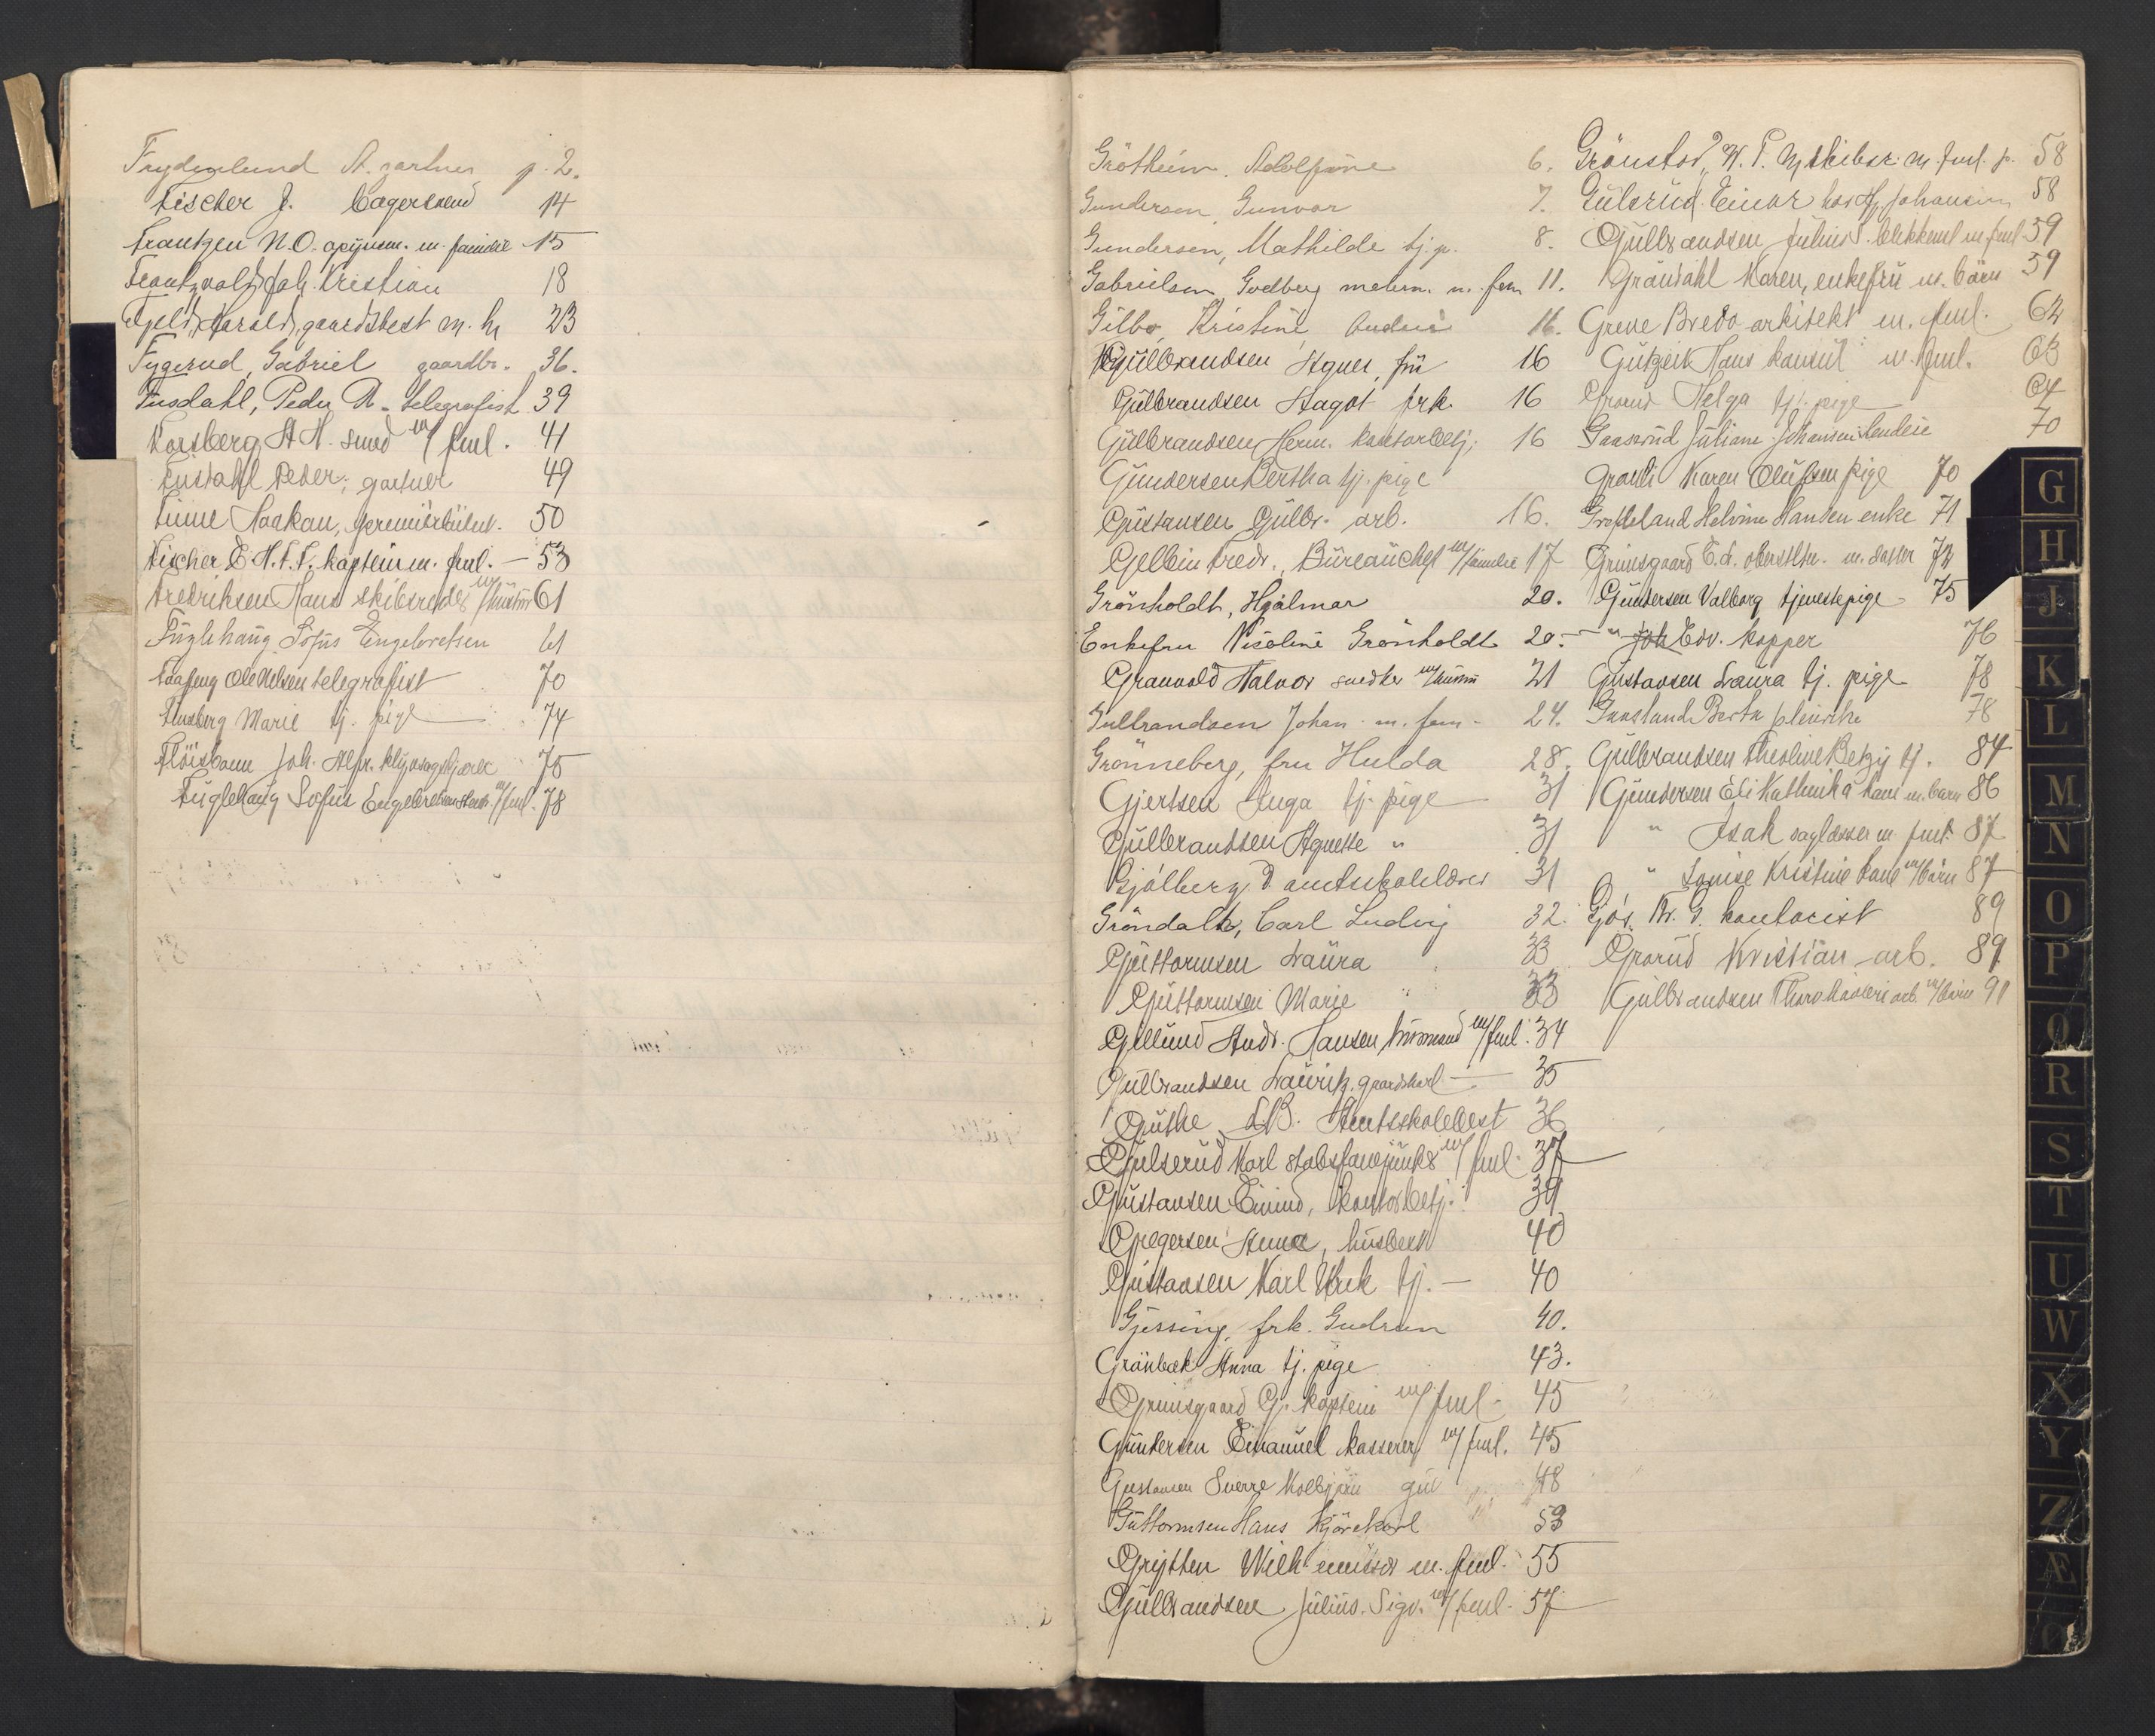 Frydenlund A. gartner p. 2.
Fischer J. bagersvend 14
Frantzen N.O. opsynsm. m. familie 15
Frantzvold Joh. Kristian 18
Fjeld, Harald, gaardsbest m. h 23
Fygerud, Gabriel gaardbr. 36.
Fusdahl, Peder A. telegrafist 39
Forsberg A H. smed m/ fml. 41
Fusdahl Peder, gartner 49
Finne Haakon, 50
Fischer E. H. F. F. kaptein m. fml. — 53
Fredriksen Hans skibsreder m/hustru 61
Fuglehaug Sofus Engebretsen 61
Faafeng Ole Nelsen telegrafist 70
Flusberg Marie tj. pige 74
Flöisbonn Joh. Alfr. 75
Fuglehaug Sofus Engebretsen m/fml. 78
Grötheim, Adolfine 6.
Gundersen, Gunvor 7.
Gundersen, Mathilde tj. p. 8.
Gabrielsen, Godberg m. fam 11.
Gilbo, Kristine 16.
Gulbrandsen Agnes, fru 16
Gulbrandsen Dagot frk. 16
Gulbrandsen Herm. kontorbetj. 16
Gundersen Bertha tj. pige
Gustavsen Gulbr. arb. 16.
Gjellein Fredr., Büreauchef m/familie 17
Grönholdt, Hjalmar 20.
Enkefru Nisoline Grönholdt 20.
Granvold Halvor snedker m/hustru 21
Gulbrandsen Johan m. fam. 24.
Grönneberg, fru Hulda 28.
Gjertsen Inga tj. pige 31
Gulbrandsen Agnethe " 31
Gjölberg D amtskolelærer 31
Gröndahl, Carl Ludvig 32.
Guttormsen Laura 33
Guttormsen Marie " 33
Gjellund Andr. Hansen m/fml. 34
Gulbrandsen Lauritz. gaardskarl 35
Guthe L.B. Amtsskolebest 36
Gulserud Karl stabsfanejunker m/ fml. 37
Gustavsen Eivind, kontorbetj. 39
Gregersen Anna, husbest 40
Gustavsen Karl tj. — 40
Gjessing, frk. Gudrun 40.
Grönbæk Anna tj. pige 43.
Grimsgaard G. kaptein m/ fml. 45
Gundersen Emanuel kasserer m/ fml. 45
Gustavsen Sverre Kolbjörn gut 48
Guttormsen Hans kjörekarl 53
Grytten Wilh. m. fml. 55
Gulbrandsen Julius. Sigv. m/ fml. 57
W. T. m. fml. p. 58
Gulsrud Einar hos Johansen 58
Gulbrandsen Julius S. blikkensl m fml 59
Gröndahl Karen, enkefru m. börn 59
Greve Bredo arkitekt m. fml. 62
Gutzeit Hans konsul m. fml. 63
Grorud Helga tj. pige 64
Gaaserud Juliane Johansen 70
Granli Karen Olufsen pige 70
Helvine Hansen enke 71
Grimsgaard E. d. oberstltn. m. datter 72
Gundersen Valborg tjenestepige 75
" Joh Edv. kopper 76
Gustavsen Laura tj. pige 78
Gaasland Berta pleierske 78
Gulbrandsen Theoline Betzy tj. 84
Gundersen Eli Kathinka kone m. barn 86
" Isak m. fml. 87
" Louise Kristine kone m/börn 87
Gjös. Kr. G. kontorist 89
Grorud Kristian arb. 89
Gulbrandsen Thora arb. m/börn 91
G
H
J
K
L
M
N
O
P
Q
R
S
T
U
W
X
Y
Z
Æ